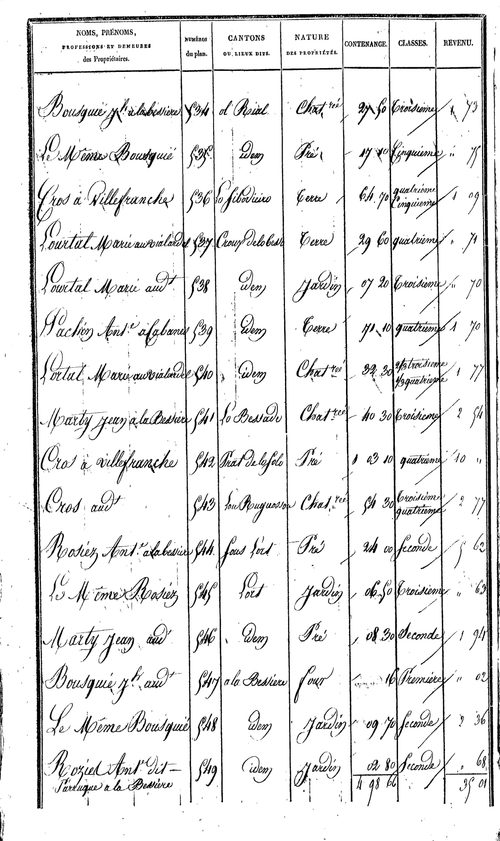 NOMS, PRÉNOMS, PROFESSIONS ET DEMEURES des Propriétaires. NUMÉROS du plan. CANTONS OU LIEUX DITS. NATURE DES PROPRIÉTÉS. CONTENANCE. CLASSES. REVENU.
Bousquié à la bessiere 534 Chat.rée 27 50 Troisième 1 73
Le Même Bousquié 535 idem Pré 17 10 Cinquieme " 75
Cros à Villefranche 536 Terre 64 70 quatrieme Cinquieme 1 09
Lourtal Marie 537 Terre 29 60 quatrieme " 71
Lourtal Marie aud.t 538 idem Jardin 07 20 Troisieme " 70
Ant.e a Cabanes 539 idem Terre 71 10 quatrieme 1 70
Lortal Marie 540 idem Chat.rée 39 30 troisieme quatrieme 1 77
Marty Jean à la Bessiere 541 Lo Bessade Chat.rée 40 30 Troisieme 2 54
Cros à Villefranche 542 Pré 1 03 10 quatrieme 10 "
Cros aud.t 543 Chat.rée 54 30 Troisieme quatrieme 2 77
Rosiez Ant.e a la bessiere 544 Sous Lort Pré 24 00 Seconde 5 62
Le Même Rosiez 545 Lort Jardin 06 50 Troisieme " 63
Marty Jean aud.t 546 idem Pré 08 30 Seconde 1 94
Bousquié aud.t 547 a la Bessiere four 16 Premiere " 02
Le Même Bousquié 548 idem Jardin 09 70 Seconde 2 36
Roziel Ant.e dit 549 idem Jardin 02 80 Seconde " 68
Parruque a la Bessiere 4 98 66 35 01